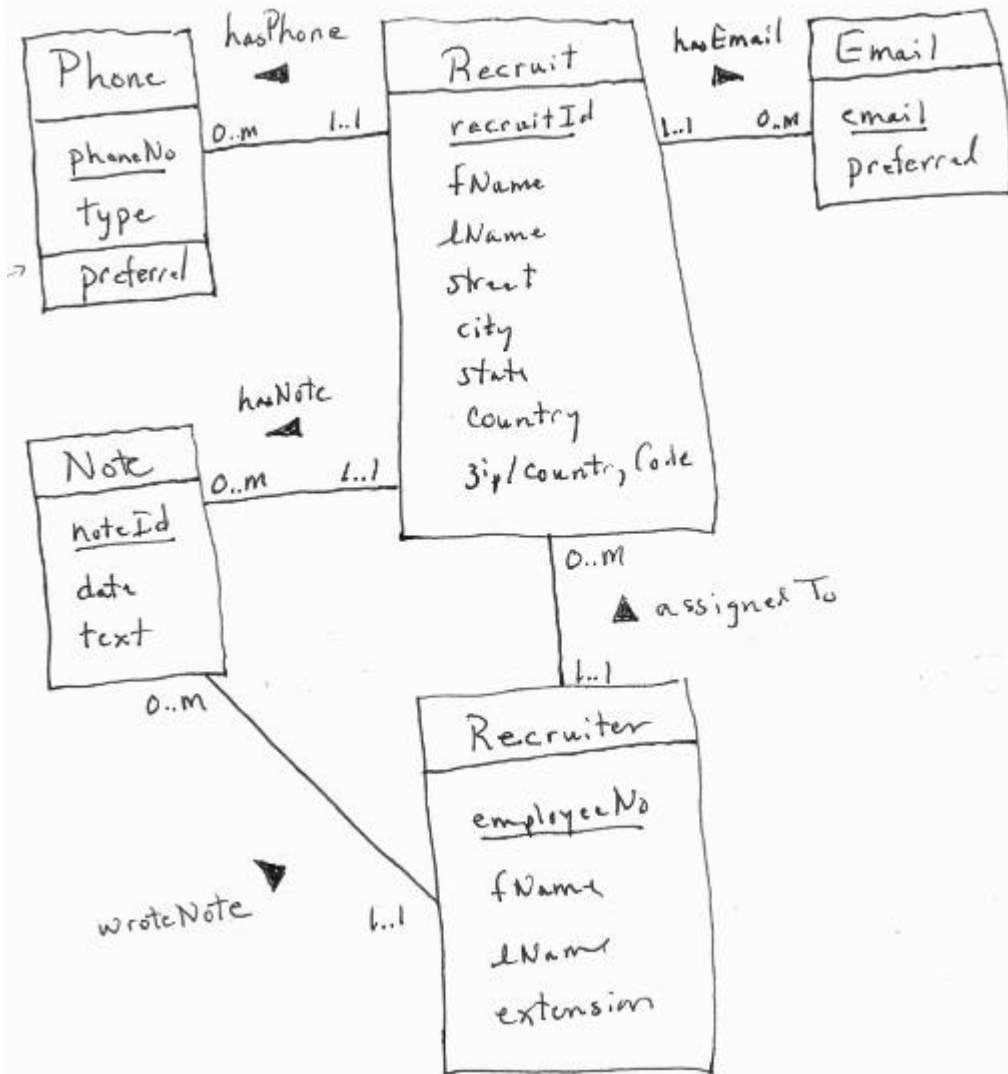 Phone
phoneNo
type
preferred
hasPhone
0..m 1..1
Recruit
recruitId
fName
lName
street
city
state
country
zip/country Code
hasEmail
1..1 0..m
Email
email
preferred
hasNote
0..m 1..1
Note
noteId
date
text
0..m
assigned To
1..1
0..m
wroteNote
1..1
Recruiter
employeeNo
fName
lName
extension